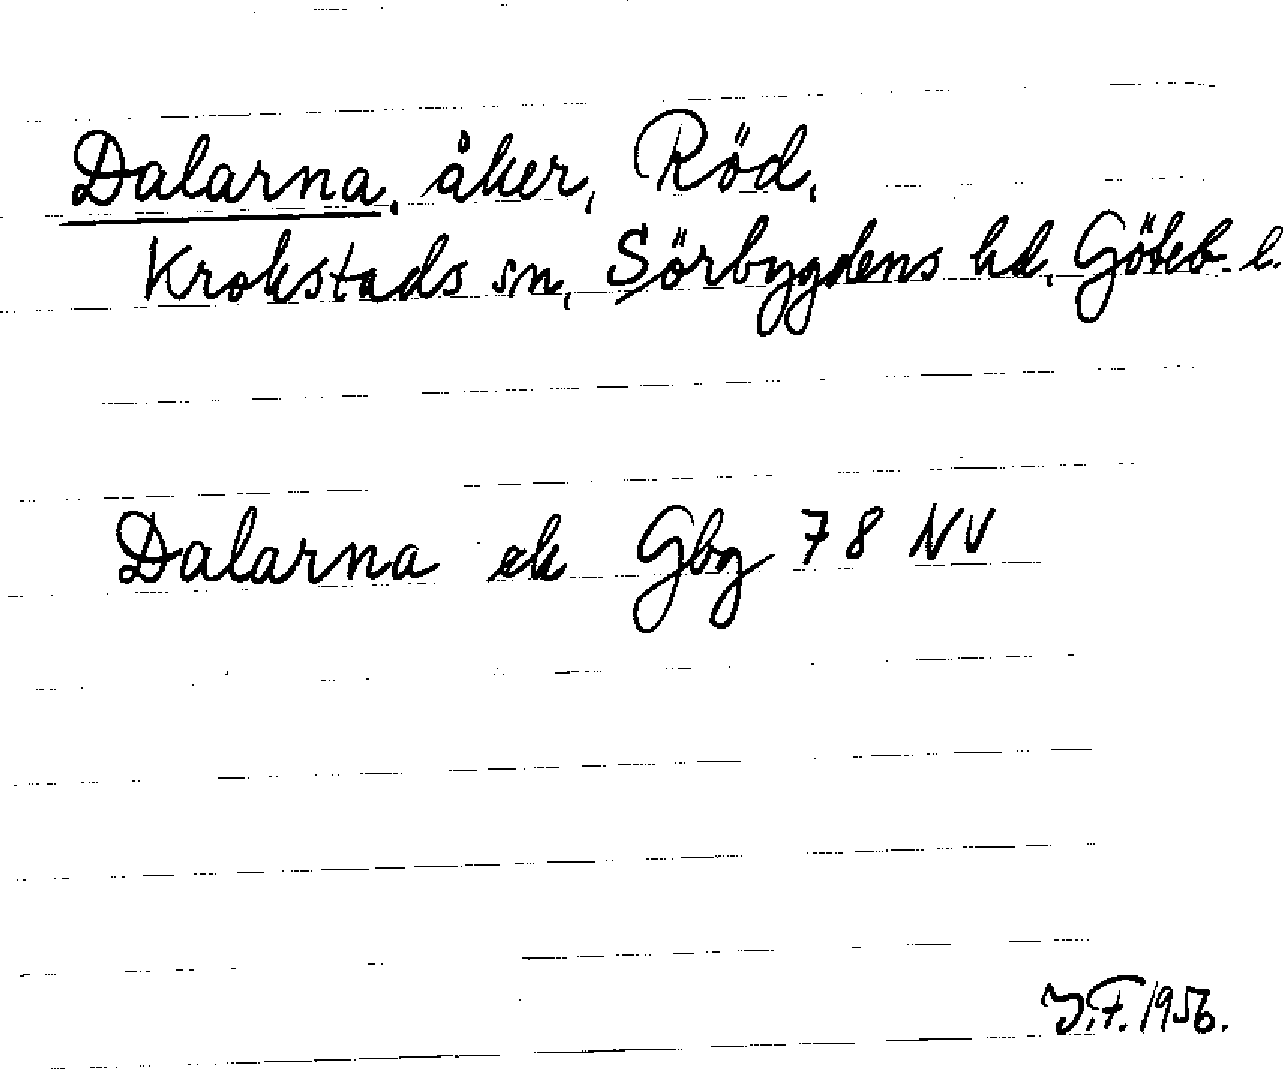 Dalarna, åker, Röd,
Krokstads sn, Sörbygdens hd, Göteb. l.
Dalarna ek Gbg 78 NV
J.F. 1956.